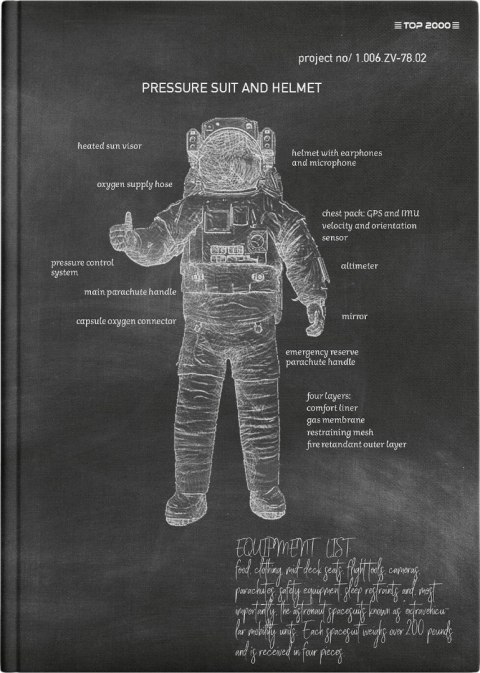 TOP 2000
project no/ 1.006 ZV-78.02
PRESSURE SUIT AND HELMET
heated sun visor
helmet with earphones
and microphone
oxygen supply hose
chest pack: GPS and IMU
velocity and orientation
sensor
pressure control
system
altimeter
main parachute handle
capsule oxygen connector
mirror
emergency reserve
parachute handle
four layers:
comfort liner
gas membrane
restraining mesh
fire retardant outer layer
EQUIPMENT LIST
food, clothing, mid-deck seats, flight tools, cameras,
parachutes, safety equipment, sleep restraints and, most
importantly, the astronaut spacesuits known as extravehicu-
lar mobility units. Each spacesuit weighs over 200 pounds
and is received in four pieces.